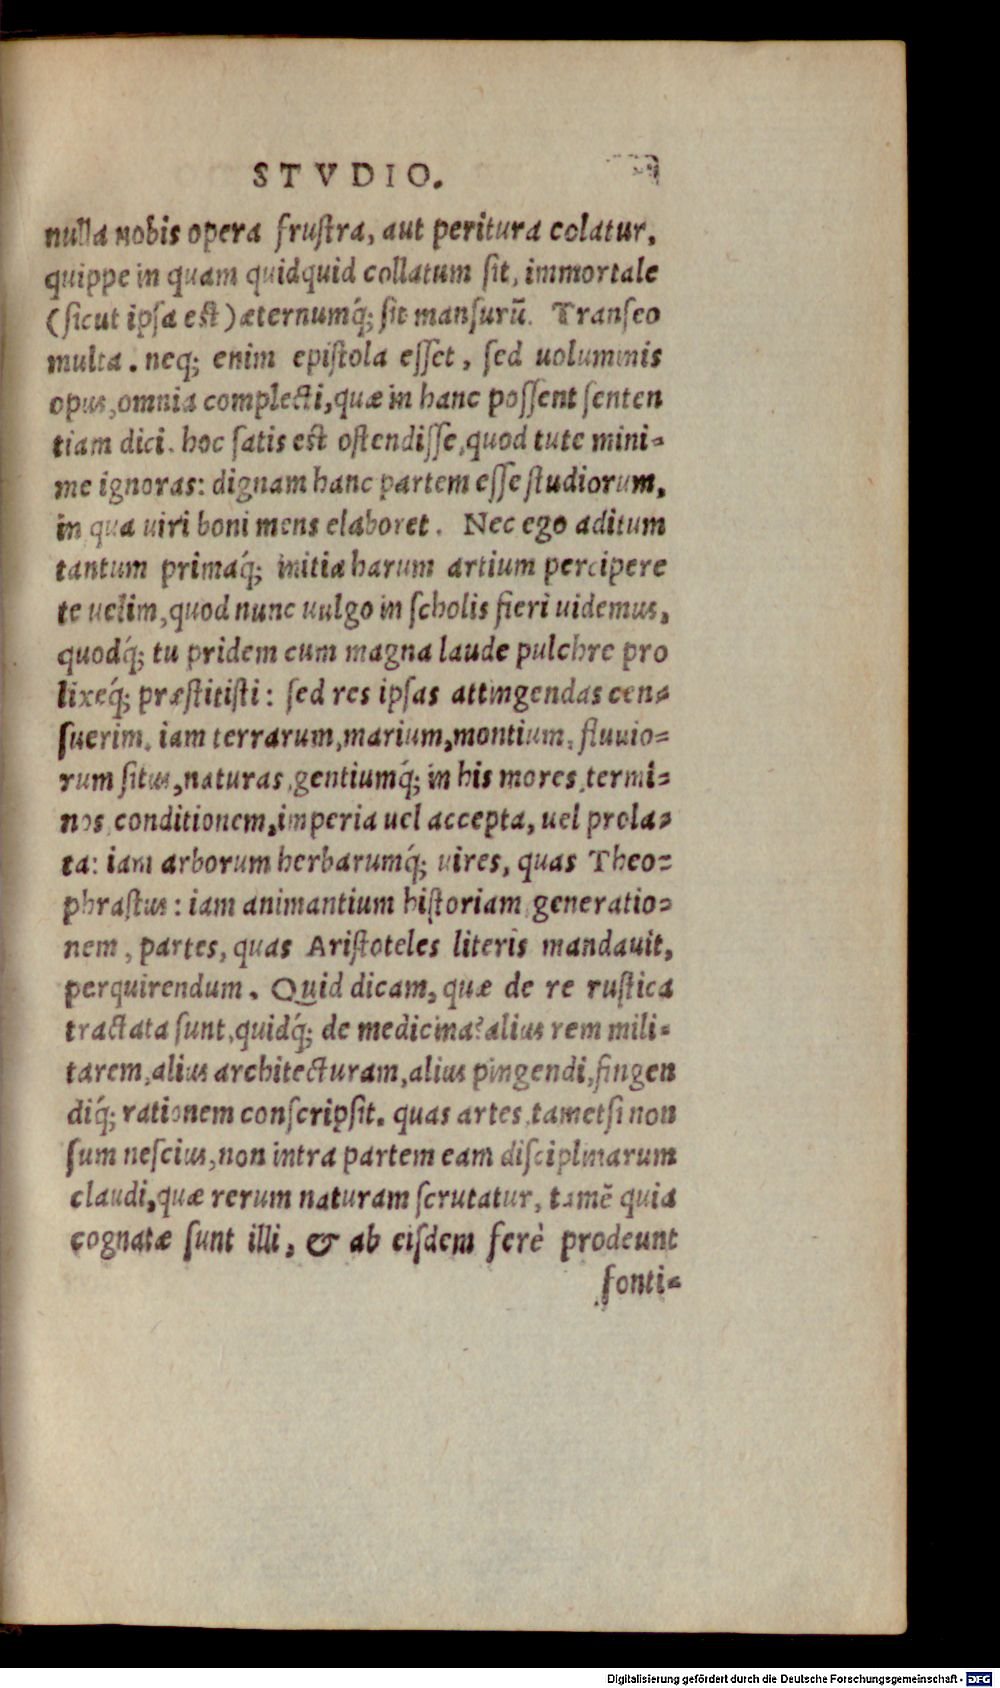 STVDIO.
nulla nobis opera frustra, aut peritura colatur,
quippe in quam quidquid collatum sit, immortale
(sicut ipsa est) æternumq́; sit mansurũ. Transeo
multa. neq; enim epistola esset, sed uoluminis
opus, omnia complecti, quæ in hanc possent senten
tiam dici. hoc satis est ostendisse, quod tute mini-
me ignoras: dignam hanc partem esse studiorum,
in qua uiri boni mens elaboret. Nec ego aditum
tantum primaq́; initia harum artium percipere
te uelim, quod nunc uulgo in scholis fieri uidemus,
quodq́; tu pridem cum magna laude pulchre pro
lixeq́; præstitisti: sed res ipsas attingendas cen-
suerim. iam terrarum, marium, montium, fluuio-
rum situs, naturas, gentiumq́; in his mores, termi-
nos, conditionem, imperia uel accepta, uel prola-
ta: iam arborum herbarumq́; uires, quas Theo-
phrastus: iam animantium historiam, generatio-
nem, partes, quas Aristoteles literis mandauit,
perquirendum. Quid dicam, quæ de re rustica
tractata sunt, quidq́; de medicina? alius rem mili-
tarem, alius architecturam, alius pingendi, fingen
diq́; rationem conscripsit. quas artes, tametsi non
sum nescius, non intra partem eam disciplinarum
claudi, quæ rerum naturam scrutatur, tamẽ quia
cognatæ sunt illi, & ab eisdem ferè prodeunt
fonti-
Digitalisierung gefördert durch die Deutsche Forschungsgemeinschaft - DFG